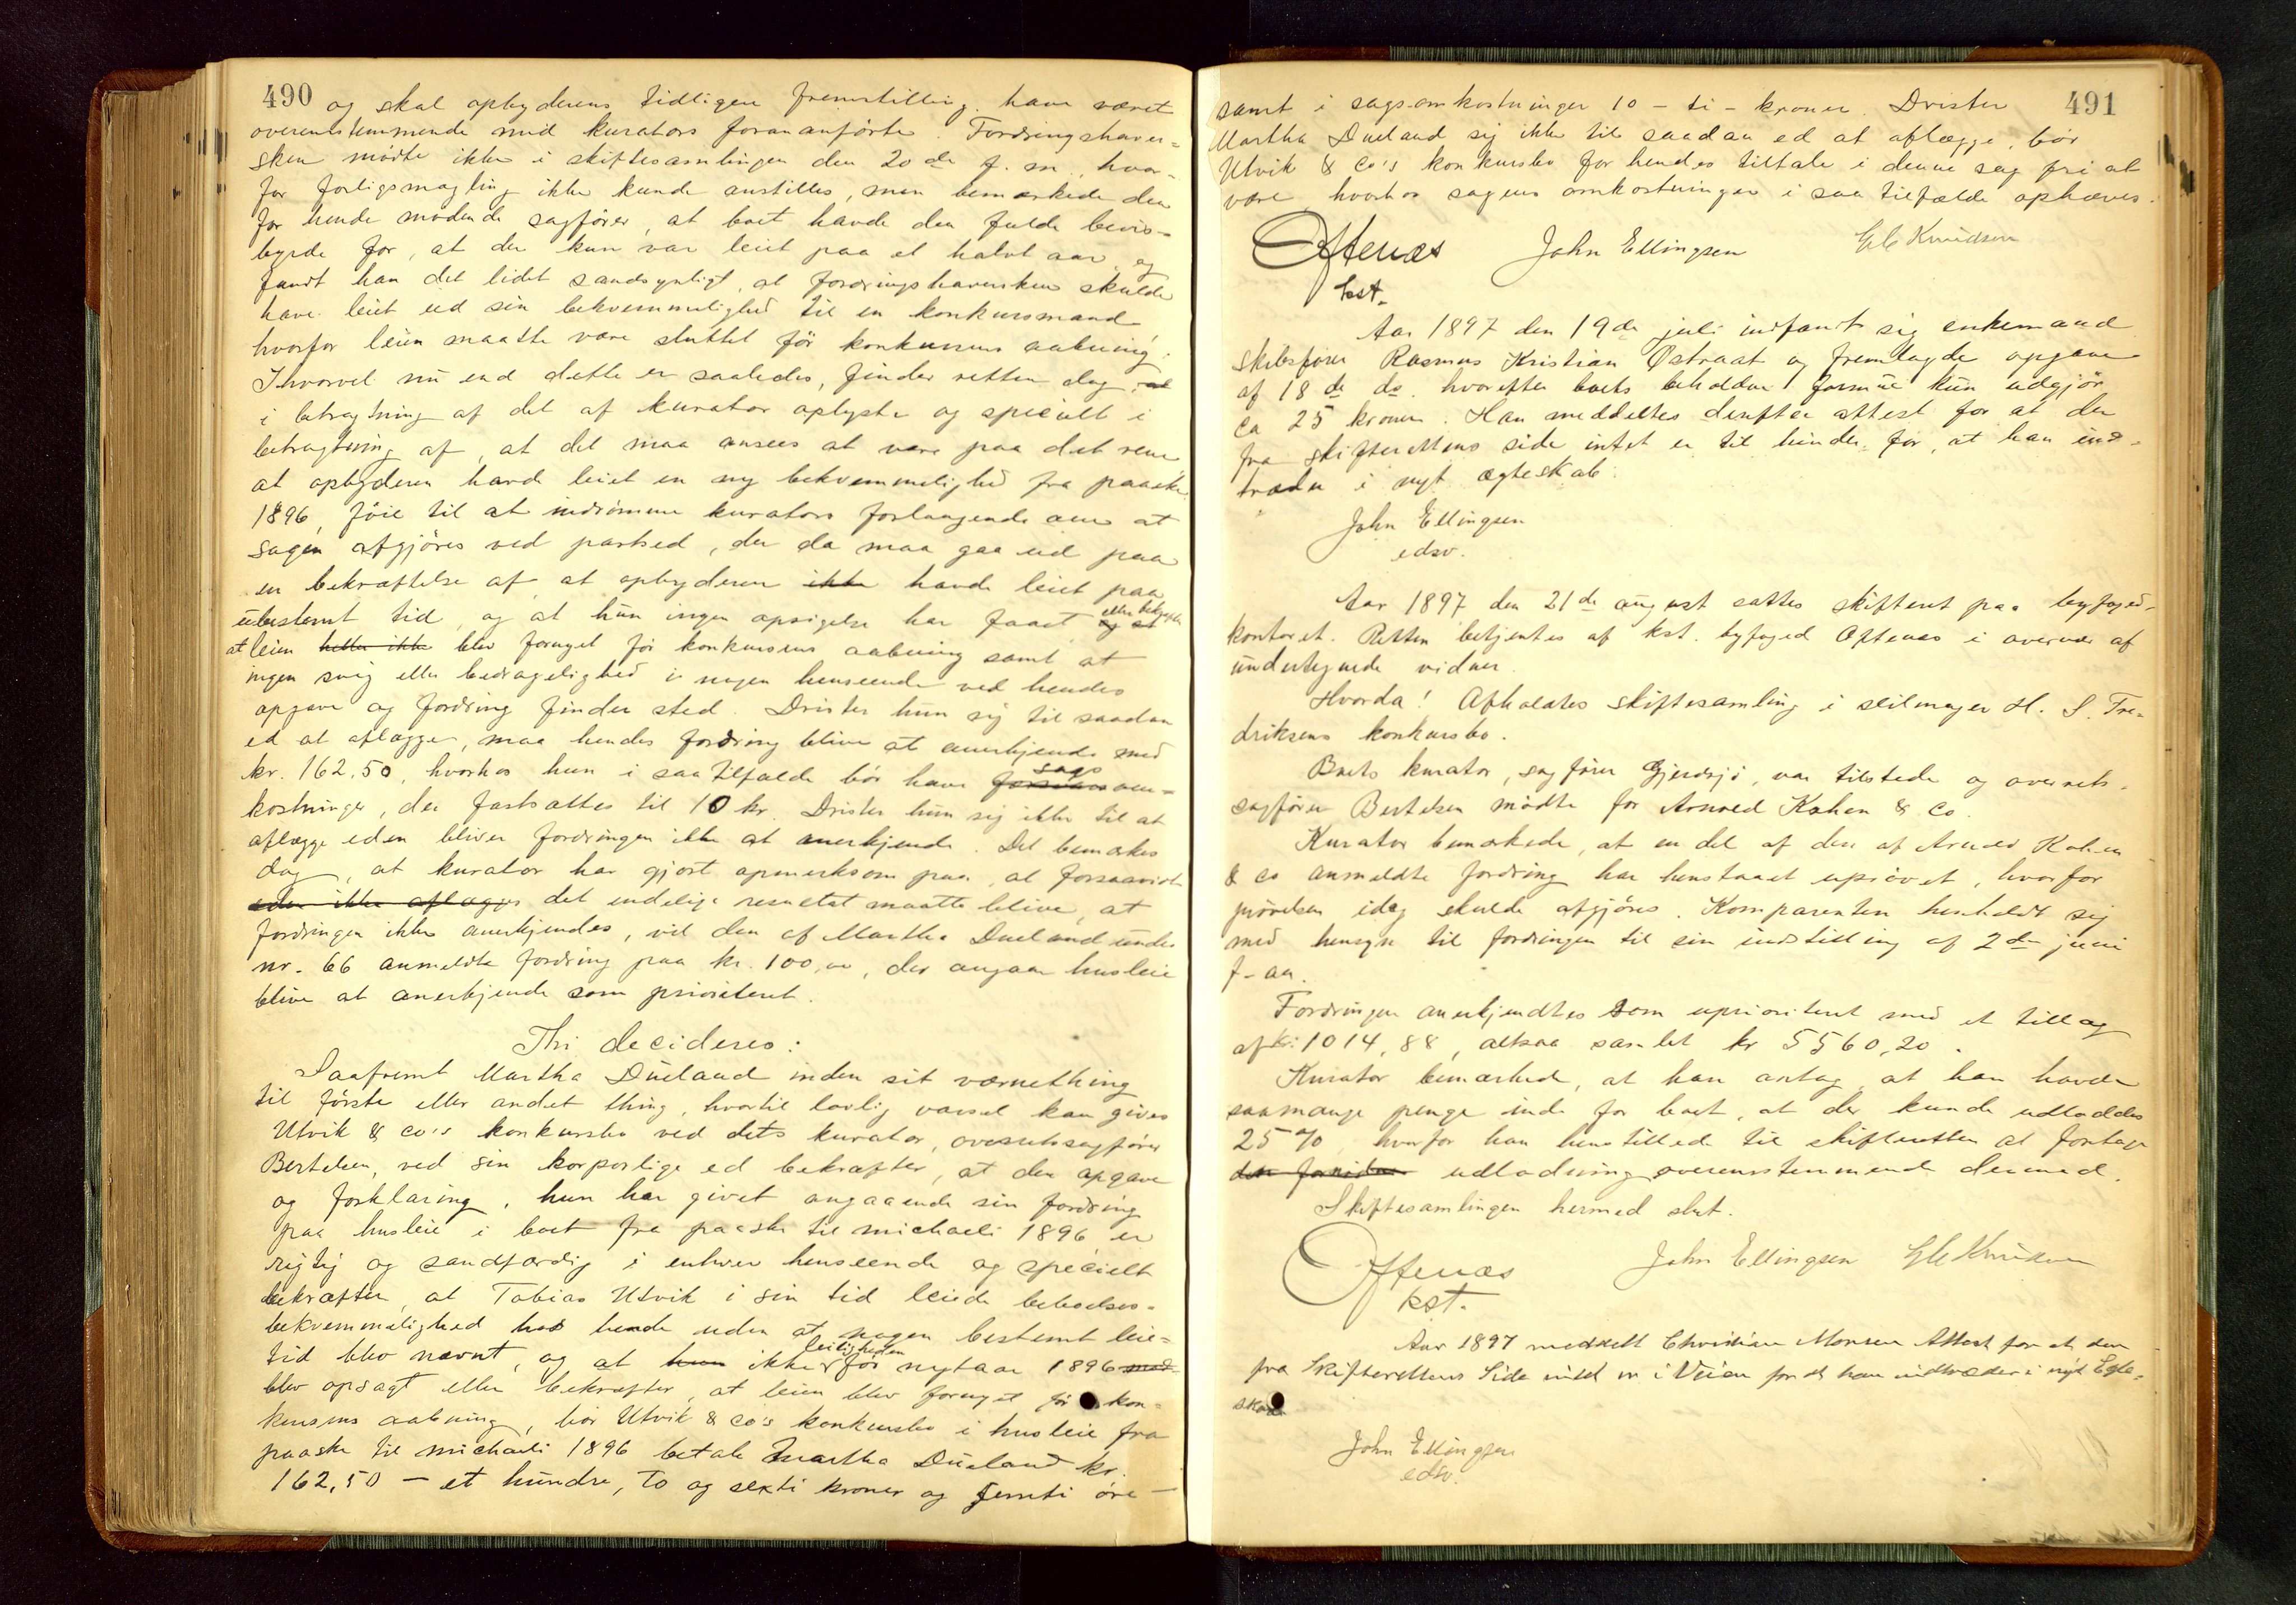 490
og skal opbyderens tidligere fremstilling have været
overensstemmende med kurators forananførte. Fordringshaver-
sken mødte ikke i skiftesamlingen den 20de f. m., hvor-
for forligsmægling ikke kunde anstilles, men bemærkede den
for hende mødende sagfører, at boet havde den fulde bevis-
byrde for, at der kun var leiet paa et halvt aar, og
fandt han det lidet sandsynligt, at fordringshaversken skulde
have leiet ud sin bekvemmelighed til en konkursmand
hvorfor leien maatte være sluttet før konkursens aabning.
Ihvorvel nu end dette er saaledes, finder retten dog
i betragtning af det af kurator oplyste og specielt i
betragtning af, at det maa ansees at være paa det rene
at opbyderen havde leiet en ny bekvemmelighed fra paaske
1896, føie til at indrømme kurators forlangende om at
sagen afgjøres ved partsed, der da maa gaa ud paa
en bekræftelse af, at opbyderen ikke havde leiet paa
ubestemt tid, og at hun ingen opsigelse har faaet og at eller bekræfte
at leien heller ikke blev fornyet før konkursens aabning samt at
ingen svig eller bedragelighed i nogen henseende ved hendes
opgave og fordring finder sted. Drister hun sig til saadan
ed at aflægge, maa hendes fordring blive at anerkjende med
kr. 162,50, hvorhos hun i saa tilfælde bør have sagsom-
kostninger, der fastsættes til 10 kr. Drister hun sig ikke til at
aflægge eden bliver fordringen ikke at anerkjende. Det bemærkes
dog, at kurator har gjort opmerksom paa, at forsaavidt
eden ikke aflægges det endelige resultat maatte blive, at
fordringen ikke anerkjendes, vil den af Martha Dueland under
nr. 66 anmeldte fordring paa kr. 100,00, der angaar husleie
blive at anerkjende som prioriteret.
Thi decideres:
Saafremt Martha Dueland inden sit værnething
til første eller andet thing, hvortil lovlig varsel kan gives
Utvik & co's konkursbo ved dets kurator, overretssagfører
Bertelsen, ved sin korporlige ed bekræfter, at den opgave
og forklaring, hun har givet angaaende sin fordring
paa husleie i boet fra paaske til michaeli 1896 er
rigtig og sandfærdig i enhver henseende og specielt
bekræfter, at Tobias Utvik i sin tid leiede beboelses-
bekvemmelighed hos hende uden at nogen bestemt leie-
tid blev nævnt, og at hun ikke leiligheden før nytaar 1896 med
blev opsagt eller bekræfter, at leien blev fornyet før kon-
kursens aabning, bør Utvik & co's konkursbo i husleie fra
paaske til michaeli 1896 betale Martha Dueland kr.
162,50 – et hundre, to og sexti kroner og femti øre –
491
samt i sagsomkostninger 10 – ti – kroner. Drister
Martha Dueland sig ikke til saadan ed at aflægge, bør
Utvik & Co's konkursbo for hendes tiltale i denne sag fri at
være, hvorhos sagens omkostninger i saa tilfælde ophæves.
Oftenæs John Ellingsen Knudsen
kst.
Aar 1897 den 19de juli indfandt sig enkemand
skibsfører Rasmus Kristian Østraat og fremlagde opgave
af 18de ds. hvorefter boets beholdne formue kun udgjør
ca 25 kroner. Han meddeltes derefter attest for at der
fra skifterettens side intet er til hinder for, at han ind-
træder i nyt ægteskab.
John Ellingsen
edsv.
Aar 1897 den 21de august sattes skifteret paa byfoged-
kontoret. Retten betjentes af kst. byfoged Oftenæs i overvær af
undertegnede vidner.
Hvorda! Afholdtes skiftesamling i seilmager H. S. Fre-
driksens konkursbo.
Boets kurator, sagfører Gjerdsjø, var tilstede og overrets-
sagfører Bertelsen mødte for Arnold Kahen & Co.
Kurator bemærkede, at en del af den af Arnold Kahen
& co anmeldte fordring har henstaaet uprøvet, hvorfor
prøvelsen idag skulde afgjøres. Komparenten henholdt sig
med hensyn til fordringen til sin indstilling af 2den juni
f. aa.
Fordringen anerkjendtes som uprioriteret med et tillæg
af kr. 1014,88, altsaa samlet kr 5560,20.
Kurator bemærkede, at han antog, at han havde
saamange penge inde for boet, at der kunde udloddes
25 % hvorfor han henstillede til skifteretten at foretage
udlodning overensstemmende dermed.
Skiftesamlingen hermed slut.
Oftenæs John Ellingsen Knudsen
kst.
Aar 1897 meddelt Christian Monsen Attest for at der
fra Skifterettens Side intet er i Veien for at han indtræder i nyt Egte-
skab
John Ellingsen
edsv.